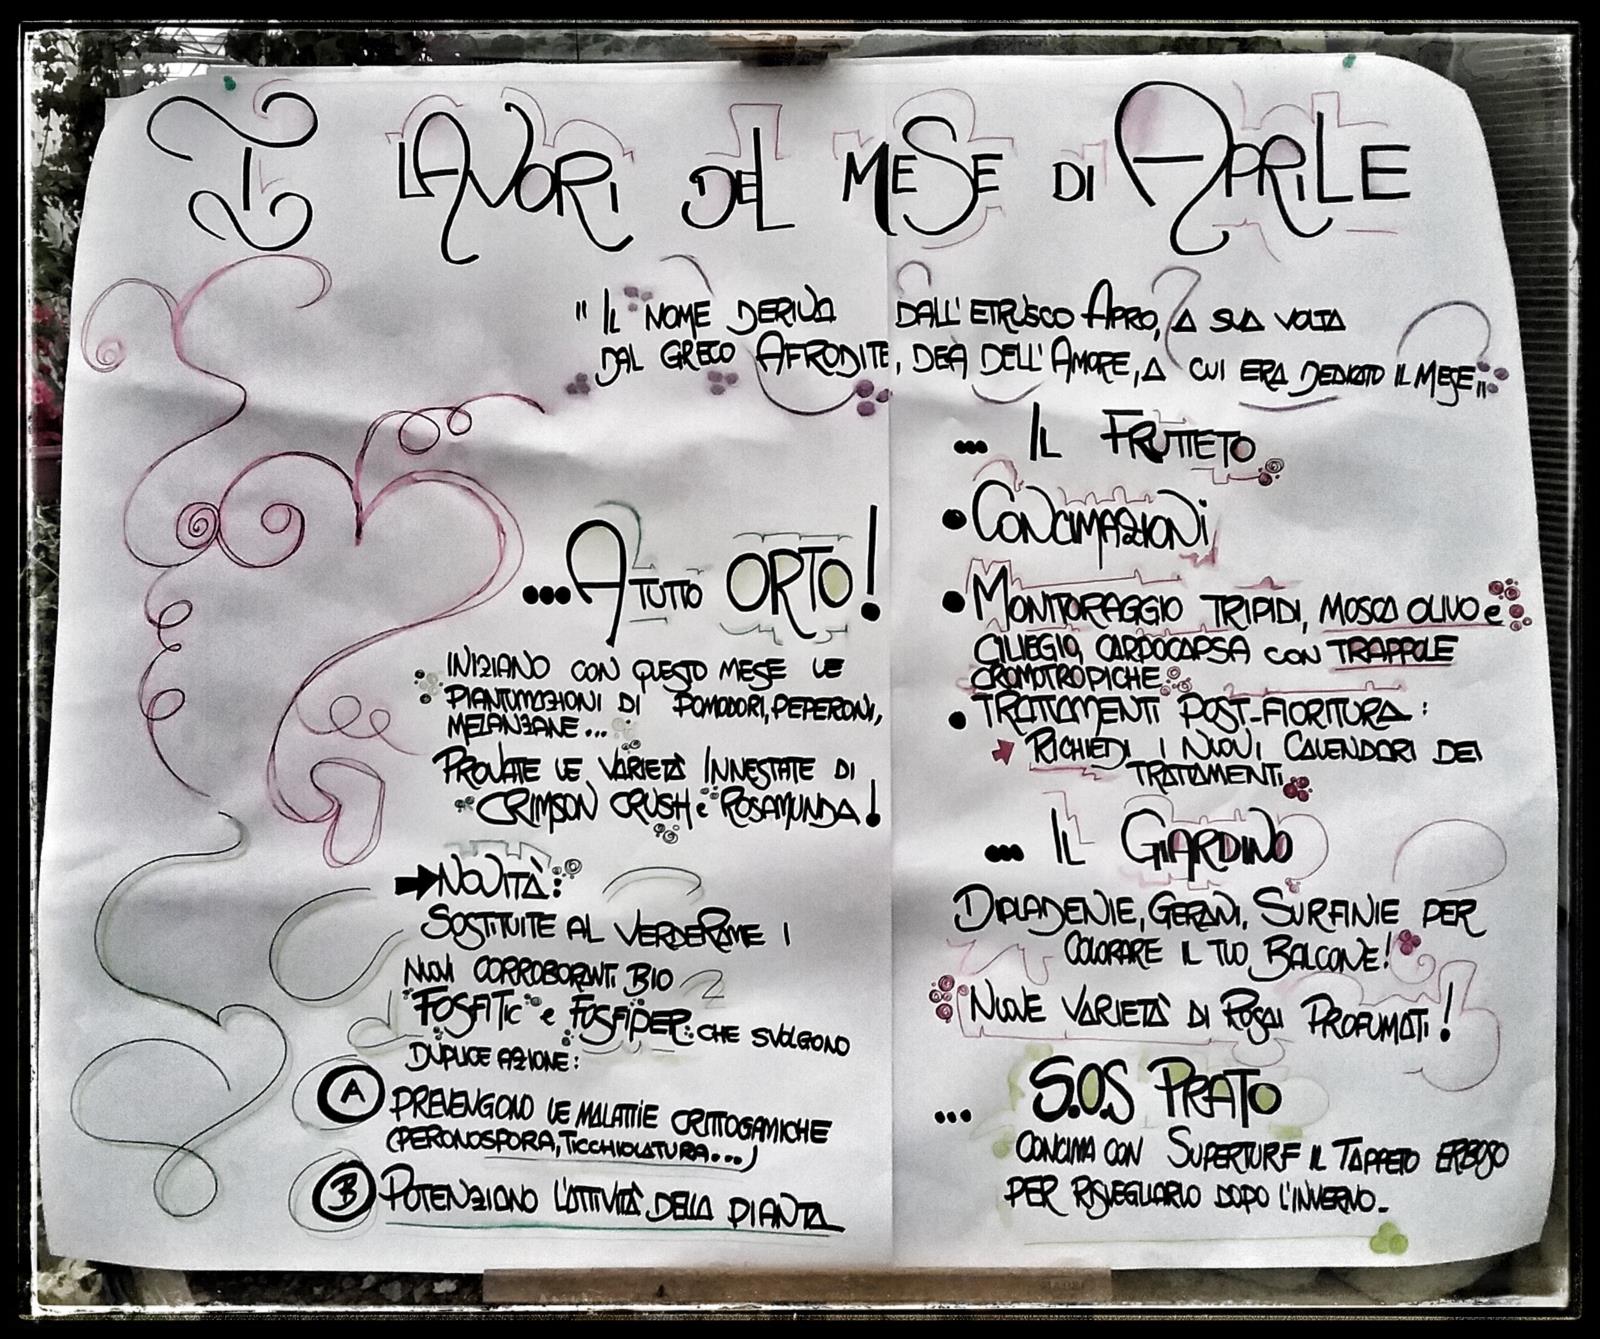 I LAVORI DEL MESE DI APRILE
"IL NOME DERIVA DALL'ETRUSCO APRO, A SUA VOLTA
DAL GRECO AFRODITE, DEA DELL'AMORE, A CUI ERA DEDICATO IL MESE"
...A TUTTO ORTO!
INIZIANO CON QUESTO MESE LE
PIANTUMAZIONI DI POMODORI, PEPERONI,
MELANZANE...
PROVATE LE VARIETÀ INNESTATE DI
CRIMSON CRUSH e ROSAMUNDA!
NOVITÀ:
SOSTITUITE AL VERDERAME I
NUOVI CORROBORANTI BIO
"FOSFITIC" e "FOSFIPER": CHE SVOLGONO
DUPLICE AZIONE:
A PREVENGONO LE MALATTIE CRITTOGAMICHE
(PERONOSPORA, TICCHIOLATURA...)
B POTENZIANO L'ATTIVITÀ DELLA PIANTA
... IL FRUTTETO
• CONCIMAZIONI
• MONITORAGGIO TRIPIDI, MOSCA OLIVO e
CILIEGIO, CARPOCAPSA CON TRAPPOLE
CROMOTROPICHE
• TRATTAMENTI POST-FIORITURA:
RICHIEDI I NUOVI CALENDARI DEI
TRATTAMENTI
... IL GIARDINO
DIPLADENIE, GERANI, SURFINIE PER
COLORARE IL TUO BALCONE!
NUOVE VARIETÀ DI ROSAI PROFUMATI!
... S.O.S PRATO
CONCIMA CON SUPERTURF IL TAPPETO ERBOSO
PER RISVEGLIARLO DOPO L'INVERNO.